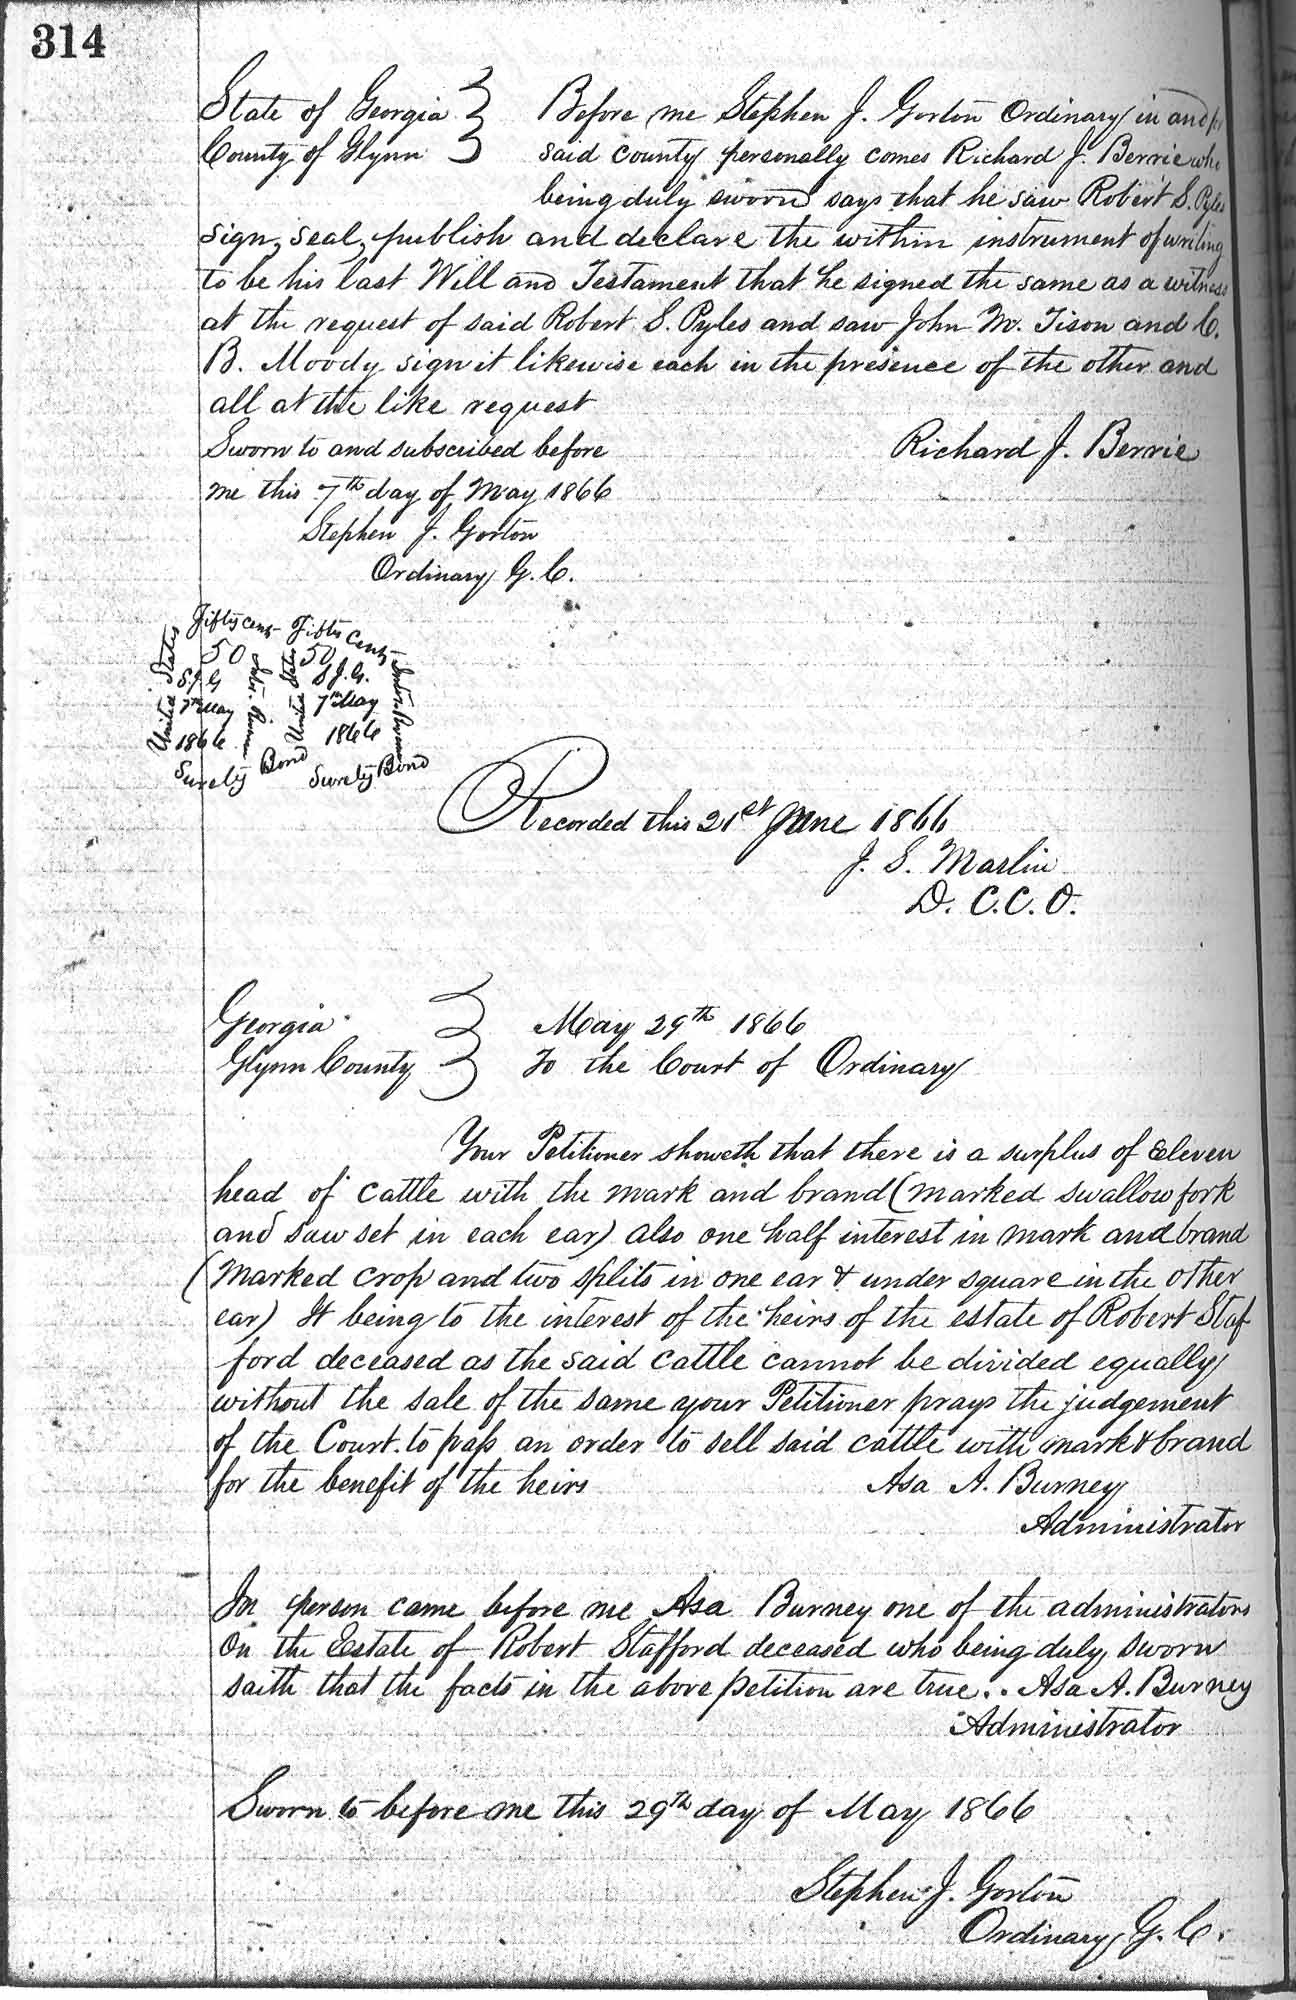 314
State of Georgia } Before me Stephen J. Gorton Ordinary in and for
County of Glynn } said county personally comes Richard J. Berrie who
being duly sworn says that he saw Robert S. Pyles
sign, seal, publish and declare the within instrument of writing
to be his last Will and Testament that he signed the same as a witness
at the request of said Robert S. Pyles and saw John M. Tison and C.
B. Moody sign it likewise each in the presence of the other and
all at the like request
Sworn to and subscribed before Richard J. Berrie
me this 7th day of May 1866
Stephen J. Gorton
Ordinary G. C.
Fifty cents Fifty Cents
United States 50 Inter. Revenue United States 50 Inter Revenue
S.J.G S J. G.
7th May 7th May
1866 1866
Surety Bond Surety Bond
Recorded this 21st June 1866
J. S. Marlin
D. C. C. O.
Georgia } May 29th 1866
Glynn County } To the Court of Ordinary
Your Petitioner showeth that there is a surplus of Eleven
head of cattle with the mark and brand (marked swallow fork
and saw set in each ear) also one half interest in mark and brand
(Marked crop and two splits in one ear & under square in the other
ear) It being to the interest of the heirs of the estate of Robert Staf
ford deceased as the said cattle cannot be divided equally
without the sale of the same your Petitioner prays the judgement
of the Court to pass an order to sell said cattle with mark & brand
for the benefit of the heirs Asa A. Burney
Administrator
In person came before me Asa Burney one of the administrators
On the Estate of Robert Stafford deceased who being duly sworn
saith that the facts in the above petition are true.. Asa A. Burney
Administrator
Sworn to before me this 29th day of May 1866
Stephen J. Gorton
Ordinary G. C.